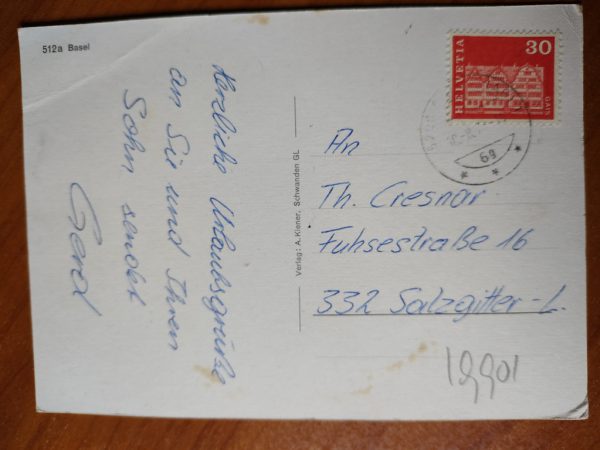 512a Basel
Herzliche Urlaubsgrüße
an Sie und Ihren
Sohn sendet
Gerd
Verlag: A. Kiener, Schwanden GL
HELVETIA
30
GAIS
69
An
Th. Cresnar
Fuhsestraße 16
332 Salzgitter-L.